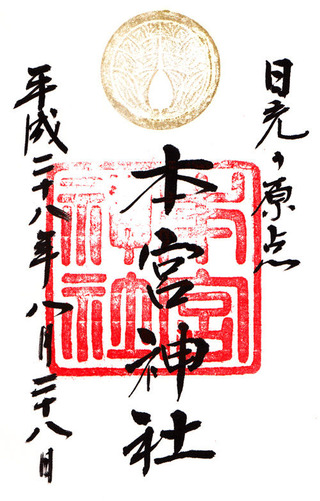 日光の原点
本宮神社
本宮神社
平成二十八年八月二十八日